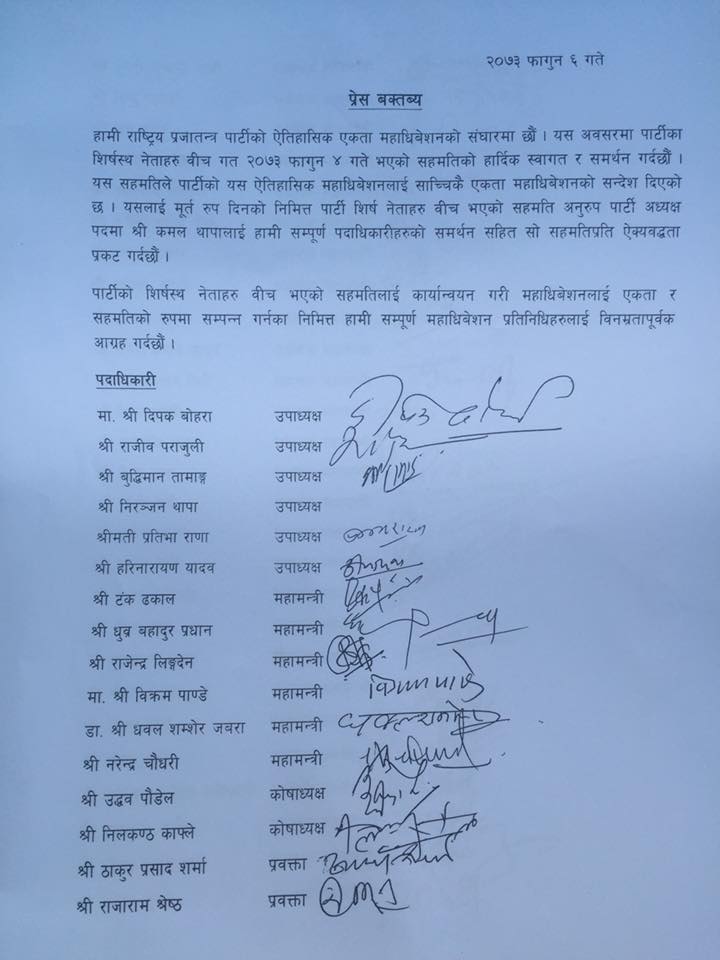 २०७३ फागुन ६ गते
प्रेस बक्तब्य
हामी राष्ट्रिय प्रजातन्त्र पार्टीको ऐतिहासिक एकता महाधिबेशनको संघारमा छौं । यस अवसरमा पार्टीका
शिर्षस्थ नेताहरु वीच गत २०७३ फागुन ४ गते भएको सहमतिको हार्दिक स्वागत र समर्थन गर्दछौं ।
यस सहमतिले पार्टीको यस ऐतिहासिक महाधिबेशनलाई साच्चिकै एकता महाधिबेशनको सन्देश दिएको
छ । यसलाई मूर्त रुप दिनको निमित्त पार्टी शिर्ष नेताहरु वीच भएको सहमति अनुरुप पार्टी अध्यक्ष
पदमा श्री कमल थापालाई हामी सम्पूर्ण पदाधिकारीहरुको समर्थन सहित सो सहमतिप्रति ऐक्यवद्धता
प्रकट गर्दछौं ।
पार्टीको शिर्षस्थ नेताहरु वीच भएको सहमतिलाई कार्यान्वयन गरी महाधिबेशनलाई एकता र
सहमतिको रुपमा सम्पन्न गर्नका निमित्त हामी सम्पूर्ण महाधिबेशन प्रतिनिधिहरुलाई विनम्रतापूर्वक
आग्रह गर्दछौं ।
पदाधिकारी
मा. श्री दिपक बोहरा उपाध्यक्ष
श्री राजीव पराजुली उपाध्यक्ष
श्री बुद्धिमान तामाङ्ग उपाध्यक्ष
श्री निरञ्जन थापा उपाध्यक्ष
श्रीमती प्रतिभा राणा उपाध्यक्ष
श्री हरिनारायण यादव उपाध्यक्ष
श्री टंक ढकाल महामन्त्री
श्री धुव्र बहादुर प्रधान महामन्त्री
श्री राजेन्द्र लिङ्गदेन महामन्त्री
मा. श्री विक्रम पाण्डे महामन्त्री
डा. श्री धवल शम्शेर जबरा महामन्त्री
श्री नरेन्द्र चौधरी महामन्त्री
श्री उद्धव पौडेल कोषाध्यक्ष
श्री निलकण्ठ काफ्ले कोषाध्यक्ष
श्री ठाकुर प्रसाद शर्मा प्रवक्ता
श्री राजाराम श्रेष्ठ प्रवक्ता